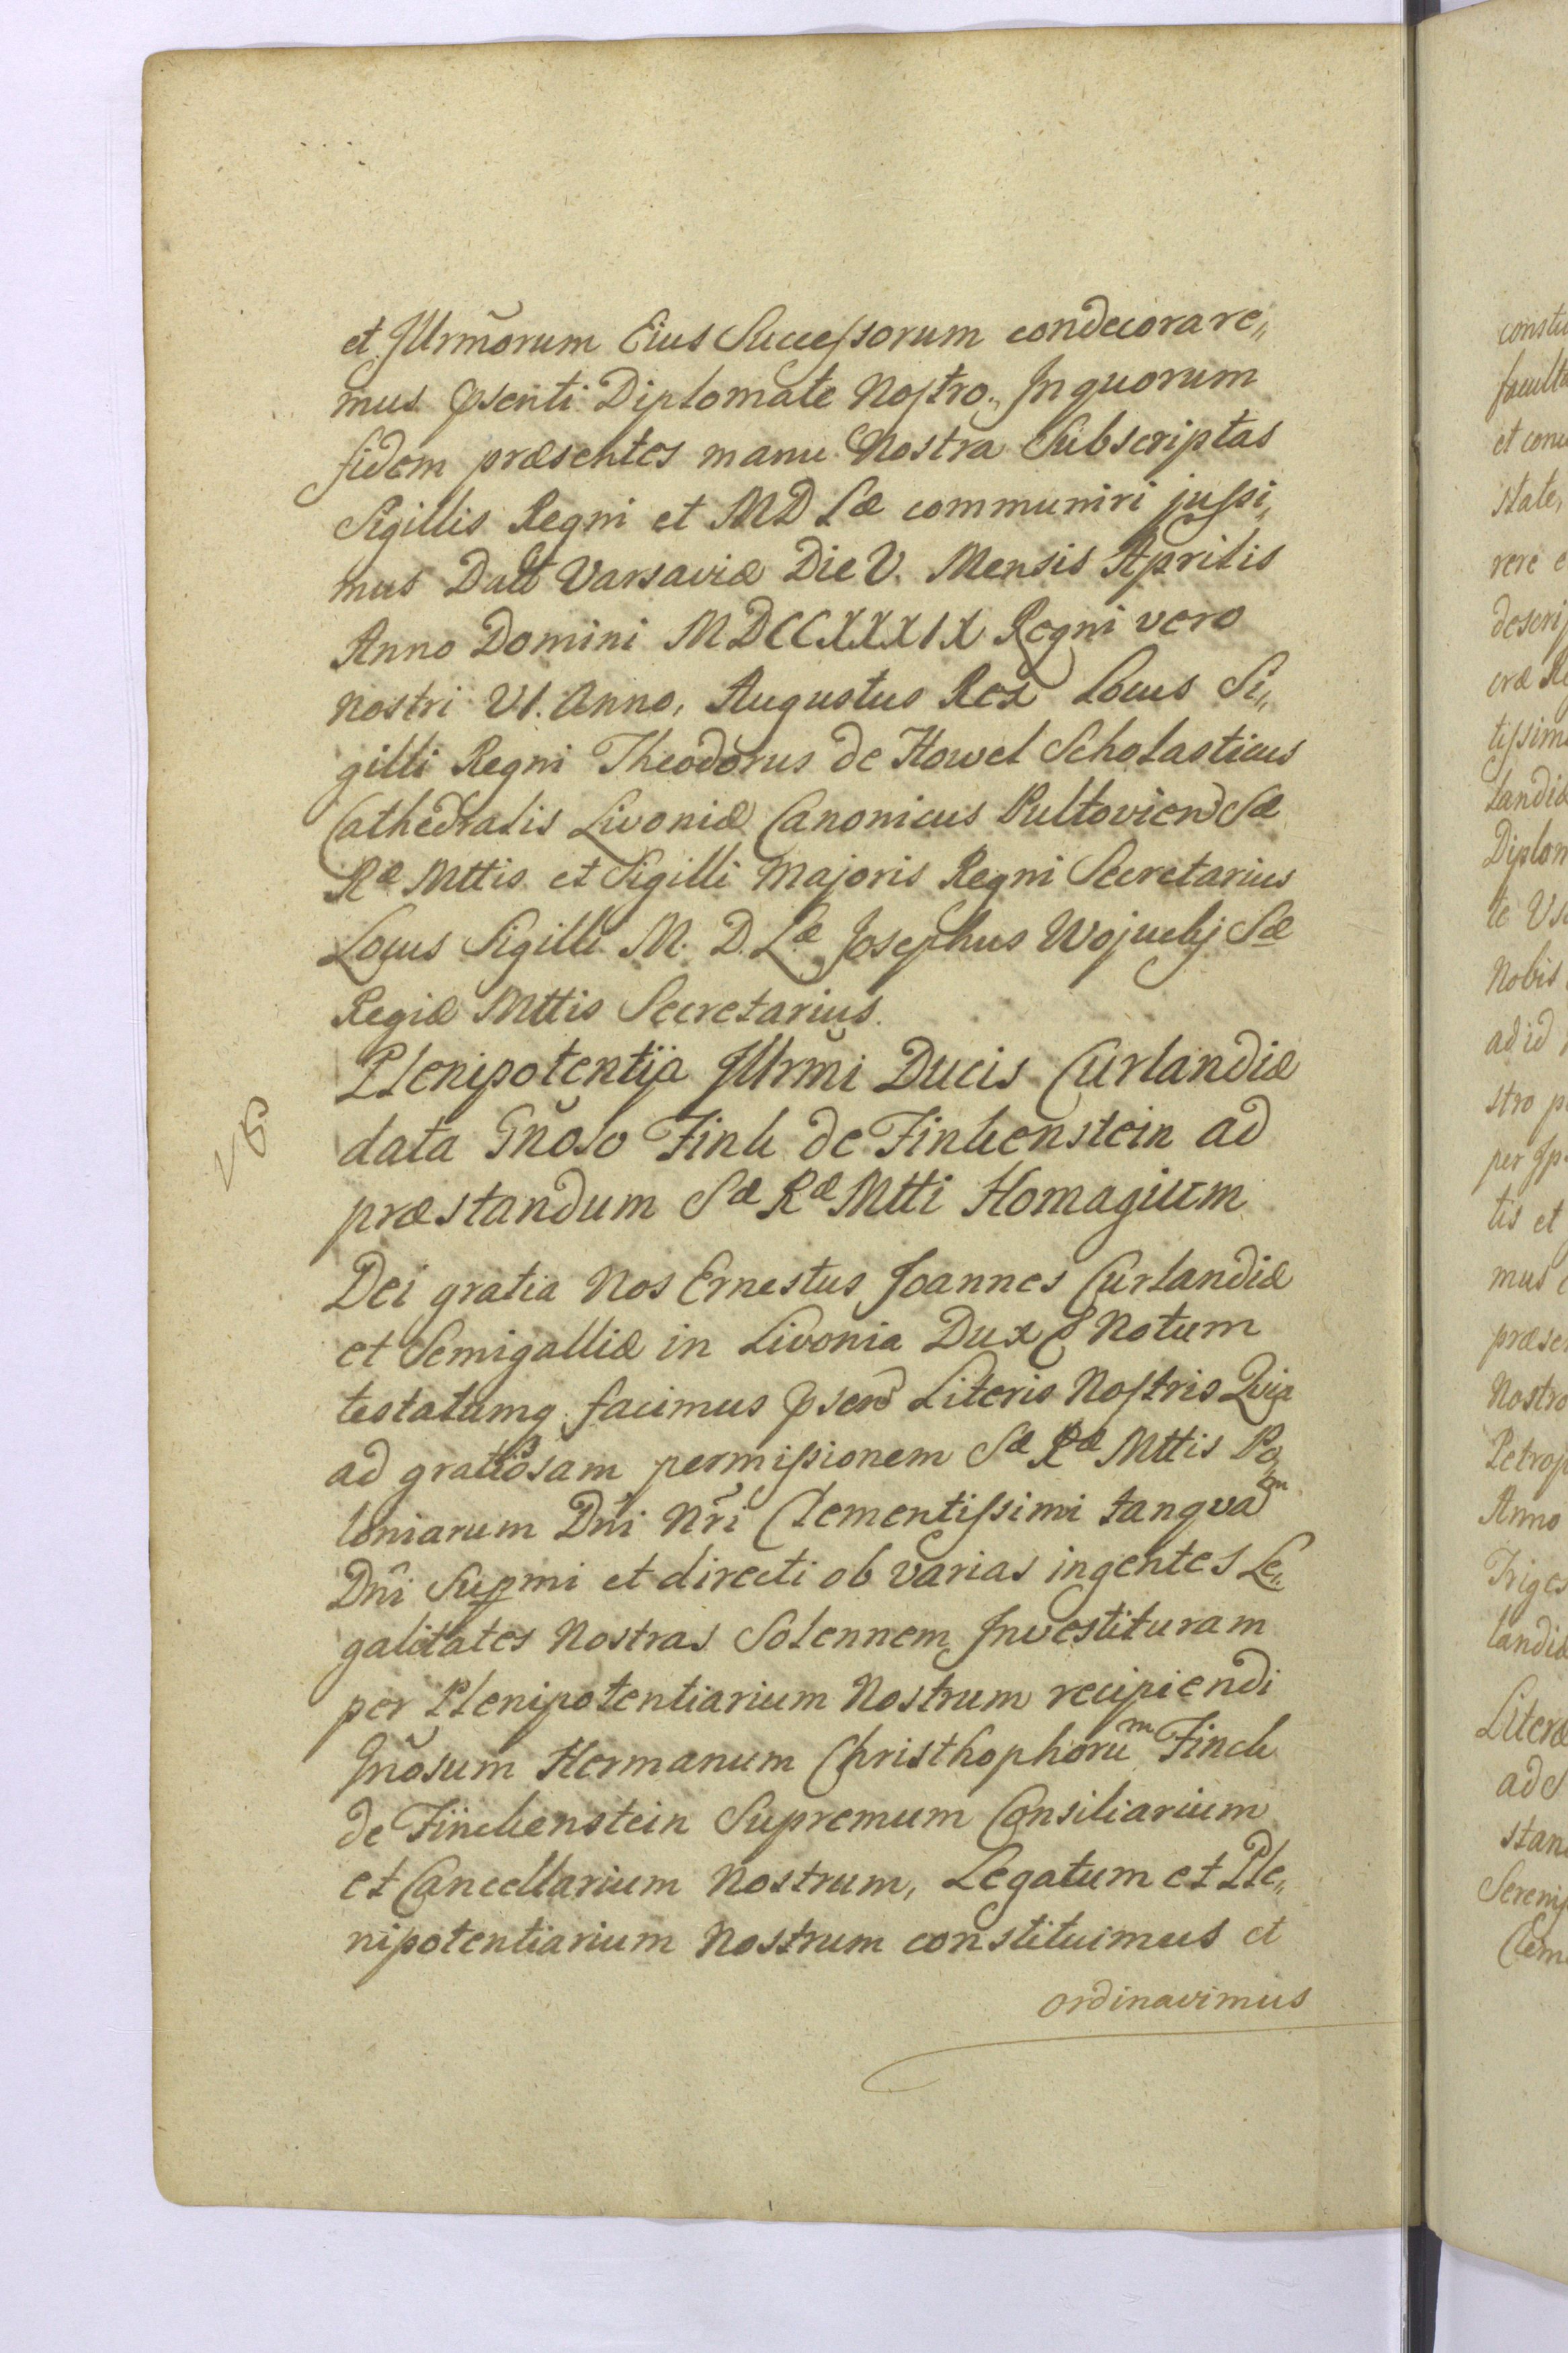 et Jllrm̃orum Eius Successorum condecorare„
mus pṡenti Diplomate Nostro„ Jn quorum
fidem præsentes manu Nostra Subscriptas
Sigillis Regni et MD Læ communiri jussi„
mus Datt Varsaviæ Die V. Mensis Aprilis
Anno Domini MDCCXXXIX Regni vero
nostri VI. Anno, Augustus Rex Locus Si„
gilli Regni Theodorus de Howel Scholasticus
Cathedralis Livoniæ Canonicus Pultovien Sæ
Ræ Mttis et Sigilli Majoris Regni Secretarius
Locus Sigilli M. D. Læ Josephus Sæ
Regiæ Mttis Secretarius.
Plenipotentÿa Jllrm̃i Ducis Curlandiæ
data Gñoso Fink de Finkenstein ad
præstandum Sæ Ræ Mtti Homagium
Dei gratia Nos Ernestus Joannes Curlandiæ
et Semigalliæ in Livonia Dux & Notum
testatumq facimus psen Literis Nostris Quia
ad gratiosam permissionem Sæ Ræ Mttis Po„
loniarum Dñi Nr̃i Clementissimi tanqvam
Dñi Supmi et directi ob varias ingentes Le„
galitates Nostras Solennem Jnvestituram
per Plenipotentiarium Nostrum recipiendi
Gñosum Hermanum Christhophorum Finck
de Finckenstein Supremum Consiliarium
et Cancellarium Nostrum, Legatum et Ple„
nipotentiarium Nostrum constituimus et
ordinavimus
constu
faculta
et conc
state,
rere e
descrip
cræ Re
tissim
landiæ
Diplom
te
Nobis
ad id
stro p
per Jp
tis et
mus
præse
Nostro
Petrop
Anno
Triges
landiæ
Literæ
ad S
stan
Sereniss
Clem